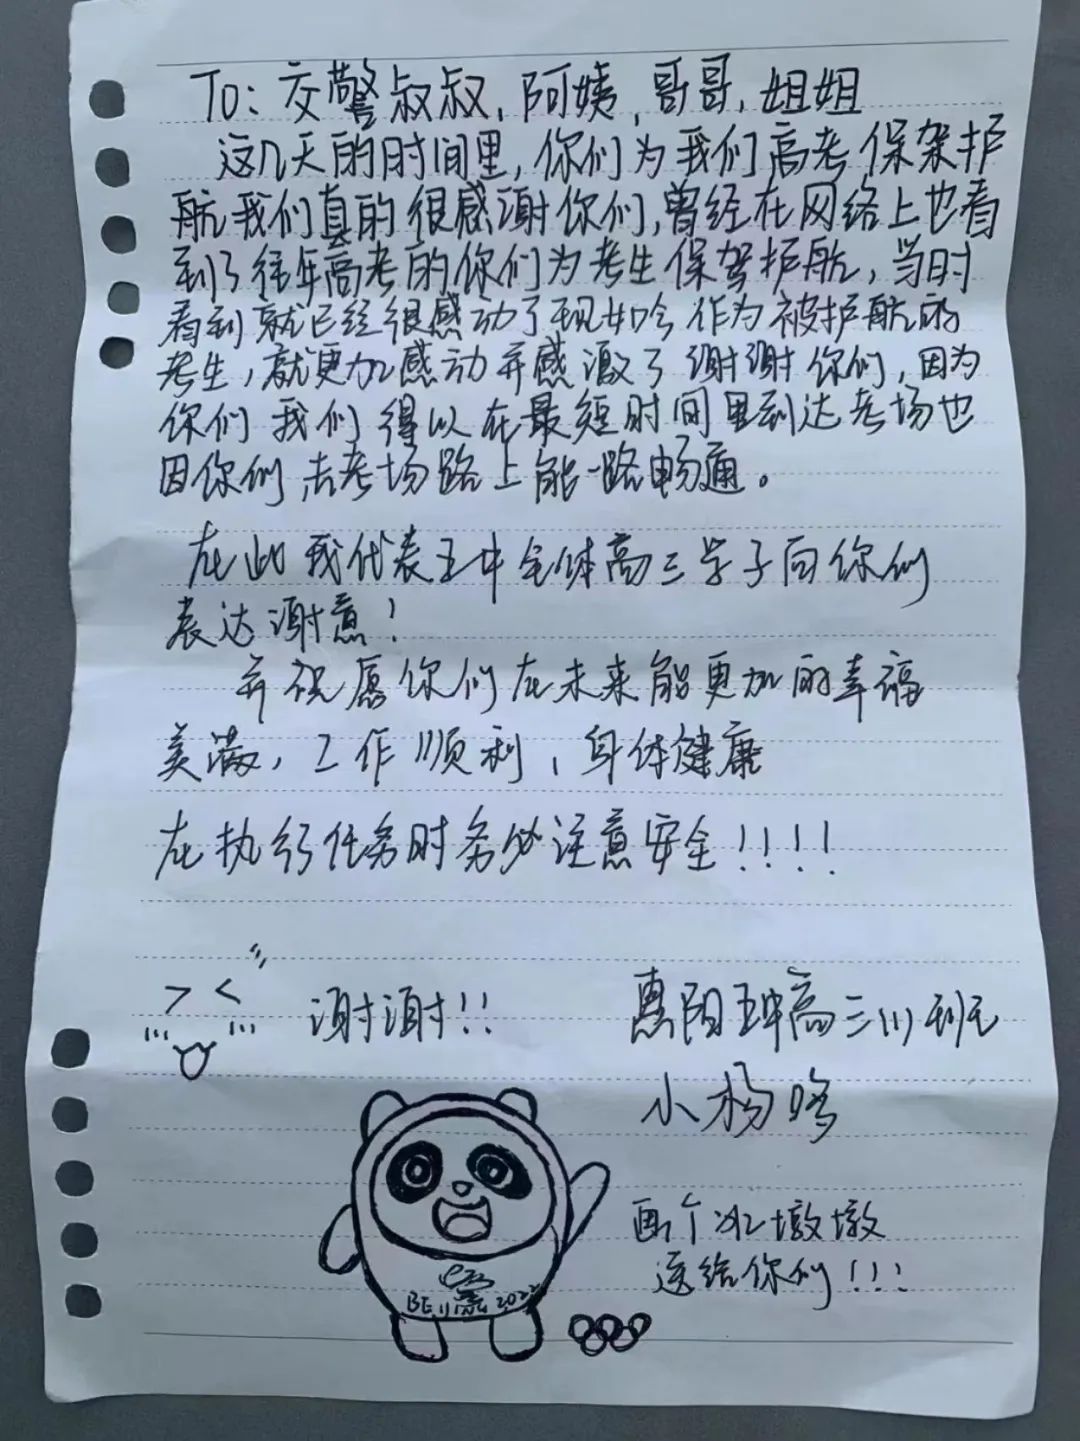 To: 交警叔叔, 阿姨, 哥哥, 姐姐
这几天的时间里, 你们为我们高考保驾护
航我们真的很感谢你们, 曾经在网络上也看
到了往年高考的你们为考生保驾护航, 当时
看到就已经很感动了现如今作为被护航的
考生, 就更加感动并感激了谢谢你们, 因为
你们我们得以在最短时间里到达考场也
因你们去考场路上能一路畅通。
在此我代表五中全体高三学子向你们
表达谢意!
并祝愿你们在未来能更加的幸福
美满, 工作顺利, 身体健康
在执行任务时务必注意安全!!!!
谢谢!!
惠阳五中高三(1)班
小杨哆
画个冰墩墩
送给你们!!!
BEIJING 2022